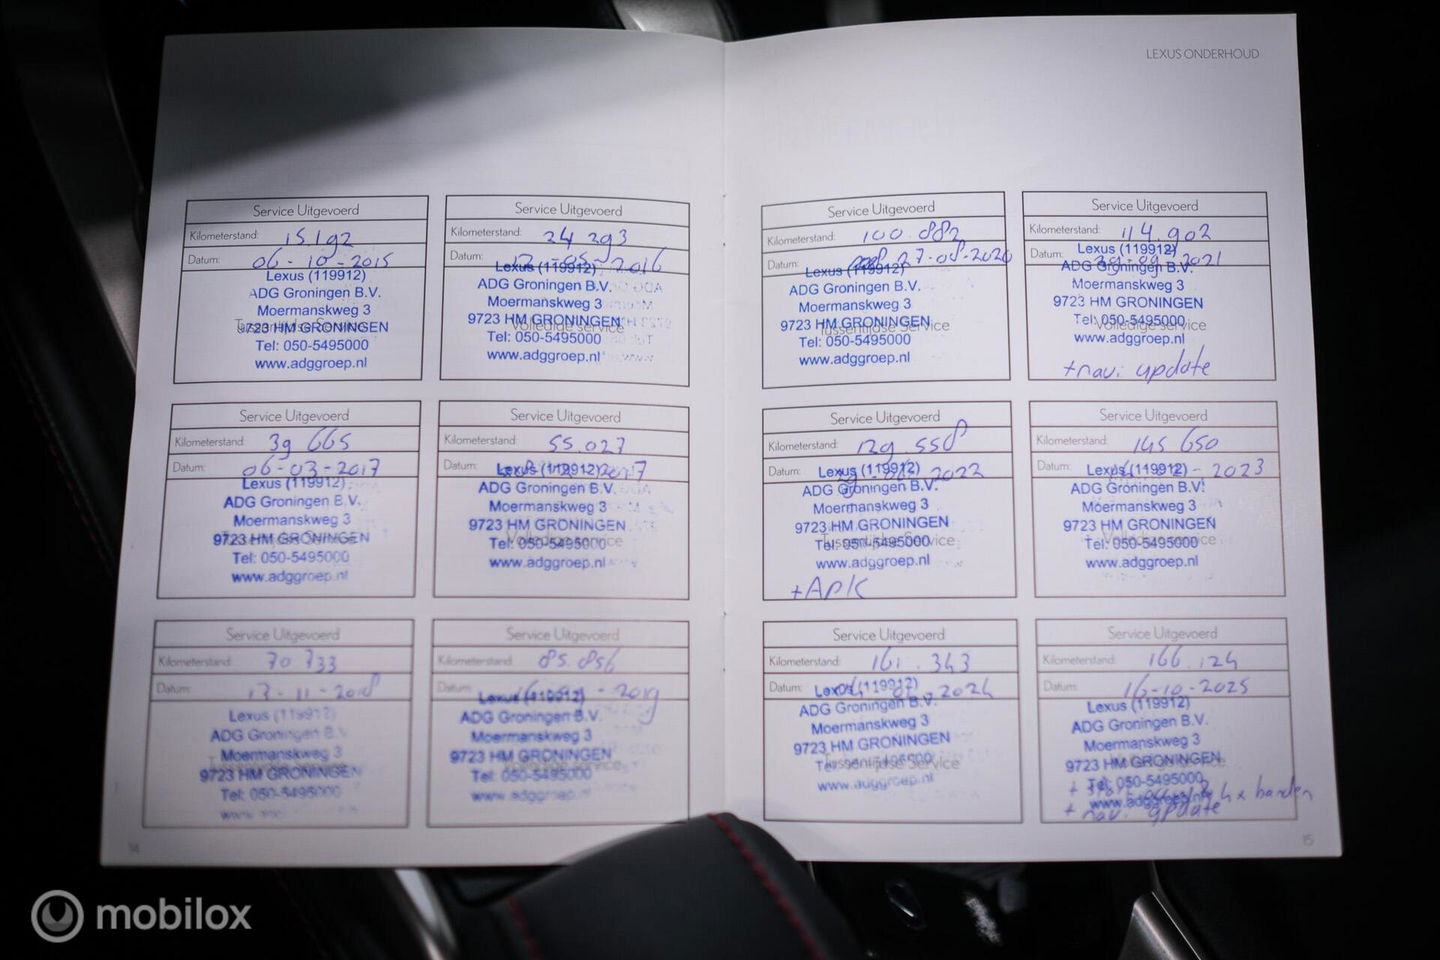 LEXUS ONDERHOUD
Service Uitgevoerd
Kilometerstand: 15.192
Datum: 06-10-2015
Lexus (119912)
ADG Groningen B.V.
Moermanskweg 3
9723 HM GRONINGEN
Tel: 050-5495000
www.adggroep.nl
Service Uitgevoerd
Kilometerstand: 24 293
Datum: 2016
Lexus (119912)
ADG Groningen B.V.
Moermanskweg 3
9723 HM GRONINGEN
Volledige service
Tel: 050-5495000
www.adggroep.nl
Service Uitgevoerd
Kilometerstand: 39 665
Datum: 06-03-2017
Lexus (119912)
ADG Groningen B.V.
Moermanskweg 3
9723 HM GRONINGEN
Tel: 050-5495000
www.adggroep.nl
Service Uitgevoerd
Kilometerstand: 55.027
Datum: 2017
Lexus (119912)
ADG Groningen B.V.
Moermanskweg 3
9723 HM GRONINGEN
Tel: 050-5495000
Volledige service
www.adggroep.nl
Service Uitgevoerd
Kilometerstand: 70 733
Datum: 13-11-2018
Lexus (119912)
ADG Groningen B.V.
Moermanskweg 3
9723 HM GRONINGEN
Tel: 050-5495000
Service Uitgevoerd
Kilometerstand: 85.856
Datum: 2019
Lexus (119912)
ADG Groningen B.V.
Moermanskweg 3
9723 HM GRONINGEN
Tel: 050-5495000
www.adggroep.nl
14
Service Uitgevoerd
Kilometerstand: 100.882
Datum: 27-08-2020
Lexus (119912)
ADG Groningen B.V.
Moermanskweg 3
9723 HM GRONINGEN
Tussentijdse Service
Tel: 050-5495000
www.adggroep.nl
Service Uitgevoerd
Kilometerstand: 114.902
Datum: 2021
Lexus (119912)
ADG Groningen B.V.
Moermanskweg 3
9723 HM GRONINGEN
Tel: 050-5495000
Volledige service
www.adggroep.nl
+navi update
Service Uitgevoerd
Kilometerstand: 129 558
Datum: 2022
Lexus (119912)
ADG Groningen B.V.
Moermanskweg 3
9723 HM GRONINGEN
Tussentijdse Service
Tel: 050-5495000
www.adggroep.nl
+APK
Service Uitgevoerd
Kilometerstand: 145 650
Datum: 2023
Lexus (119912)
ADG Groningen B.V.
Moermanskweg 3
9723 HM GRONINGEN
Volledige service
Tel: 050-5495000
www.adggroep.nl
Service Uitgevoerd
Kilometerstand: 161.343
Datum: 2024
Lexus (119912)
ADG Groningen B.V.
Moermanskweg 3
9723 HM GRONINGEN
Tussentijdse Service
Tel: 050-5495000
www.adggroep.nl
Service Uitgevoerd
Kilometerstand: 166.124
Datum: 16-10-2025
Lexus (119912)
ADG Groningen B.V.
Moermanskweg 3
9723 HM GRONINGEN
Tel: 050-5495000
4x banden
www.adggroep.nl
+ navi update
15
mobilox